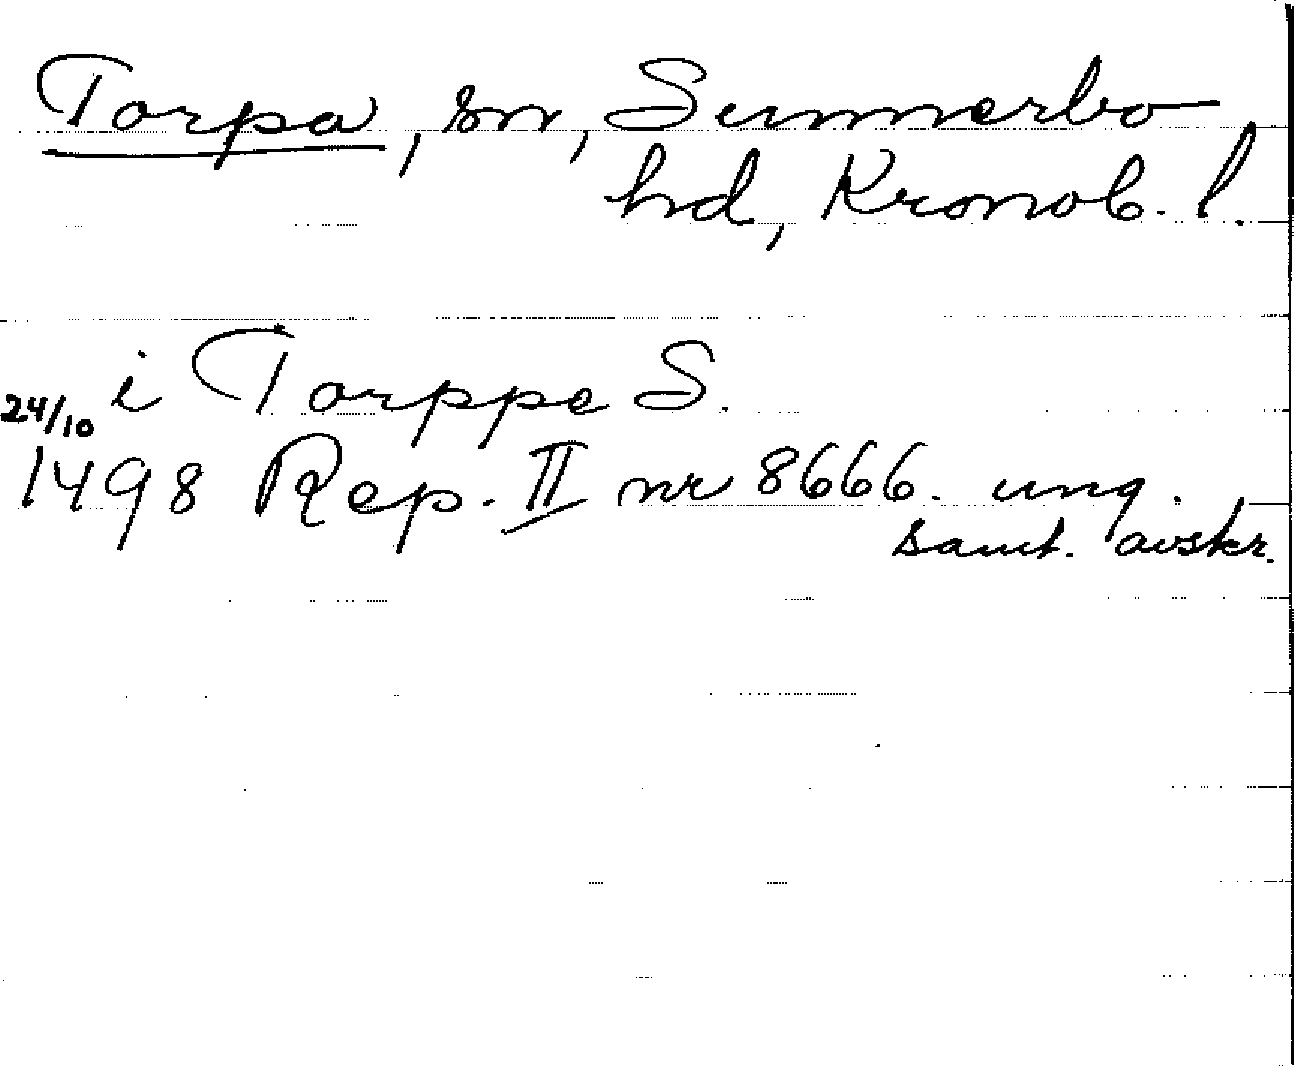 Torpa, sn, Sunnerbo
hd, Kronob. l.
i Torppe S.
24/10
1498 Rep. II nr 8666. ung.
samt. avskr.